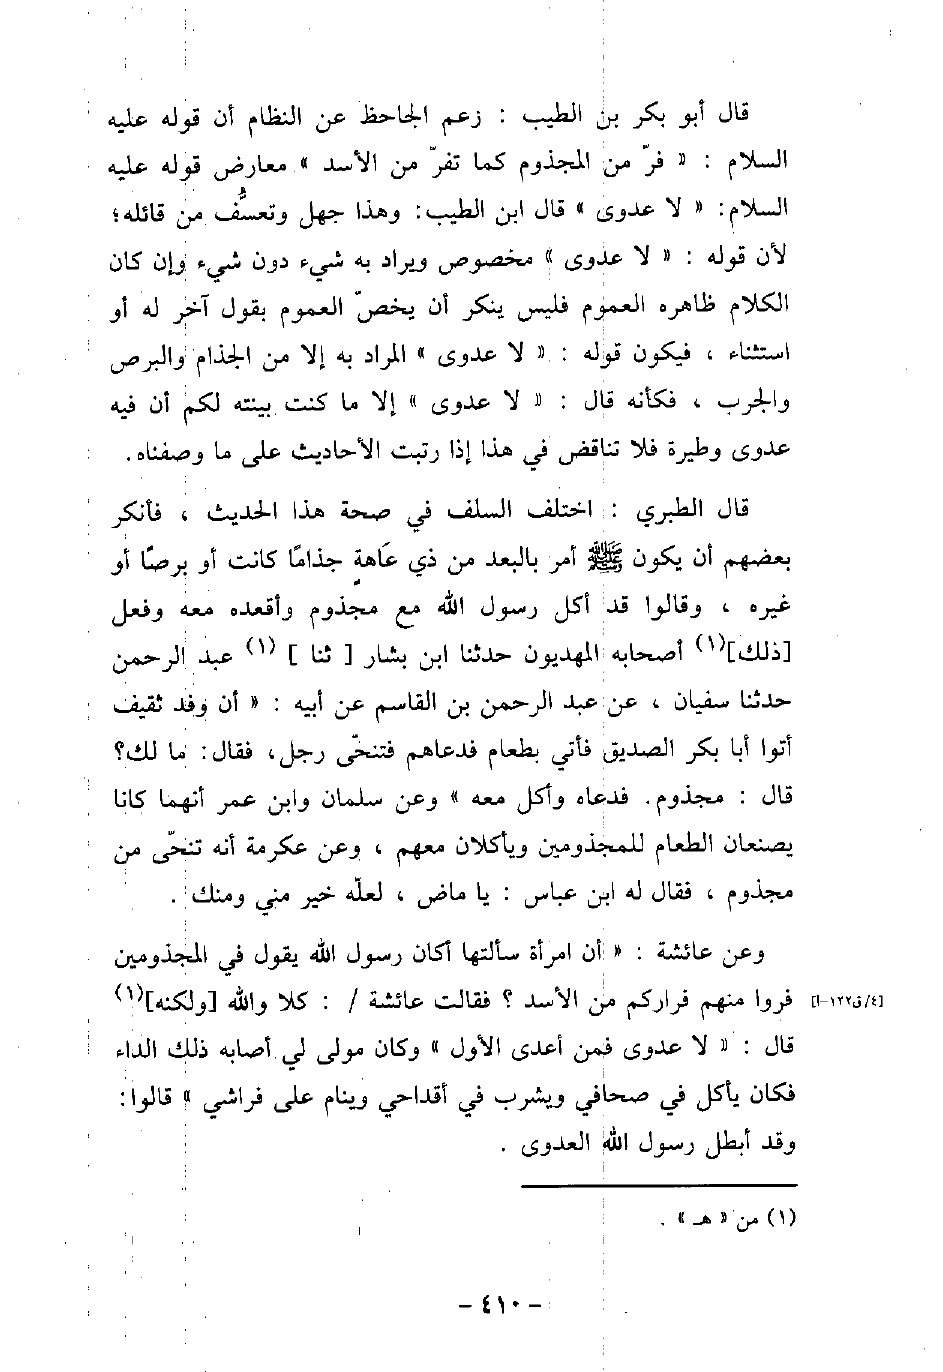 قال أبو بكر بن الطيب : زعم الجاحظ عن النظام أن قوله عليه
السلام : « فرّ من المجذوم كما تفرّ من الأسد » معارض قوله عليه
السلام: « لا عدوى » قال ابن الطيب: وهذا جهل وتعسُّف من قائله؛
لأن قوله : « لا عدوى » مخصوص ويراد به شيء دون شيء وإن كان
الكلام ظاهره العموم فليس ينكر أن يخصّ العموم بقول آخر له أو
استثناء ، فيكون قوله : « لا عدوى » المراد به إلا من الجذام والبرص
والجرب ، فكأنه قال : « لا عدوى » إلا ما كنت بينته لكم أن فيه
عدوى وطيرة فلا تناقض في هذا إذا رتبت الأحاديث على ما وصفناه.
قال الطبري : اختلف السلف في صحة هذا الحديث ، فأنكر
بعضهم أن يكون ﷺ أمر بالبعد من ذي عَاهةٍ جذامًا كانت أو برصًا أو
غيره ، وقالوا قد أكل رسول الله مع مجذوم وأقعده معه وفعل
[ذلك](١) أصحابه المهديون حدثنا ابن بشار [ ثنا ] (١) عبد الرحمن
حدثنا سفيان ، عن عبد الرحمن بن القاسم عن أبيه : « أن وفد ثقيف
أتوا أبا بكر الصديق فأتي بطعام فدعاهم فتنحّى رجل، فقال: ما لك؟
قال : مجذوم. فدعاه وأكل معه » وعن سلمان وابن عمر أنهما كانا
يصنعان الطعام للمجذومين ويأكلان معهم ، وعن عكرمة أنه تنحّى من
مجذوم ، فقال له ابن عباس : يا ماض ، لعلّه خير مني ومنك .
وعن عائشة : « أن امرأة سألتها أكان رسول الله يقول في المجذومين
[٤/ق١٢٢-أ] فروا منهم فراركم من الأسد ؟ فقالت عائشة / : كلا والله [ولكنه](١)
قال : « لا عدوى فمن أعدى الأول » وكان مولى لي أصابه ذلك الداء
فكان يأكل في صحافي ويشرب في أقداحي وينام على فراشي » قالوا:
وقد أبطل رسول الله العدوى .
(١) من « هـ » .
- ٤١٠ -